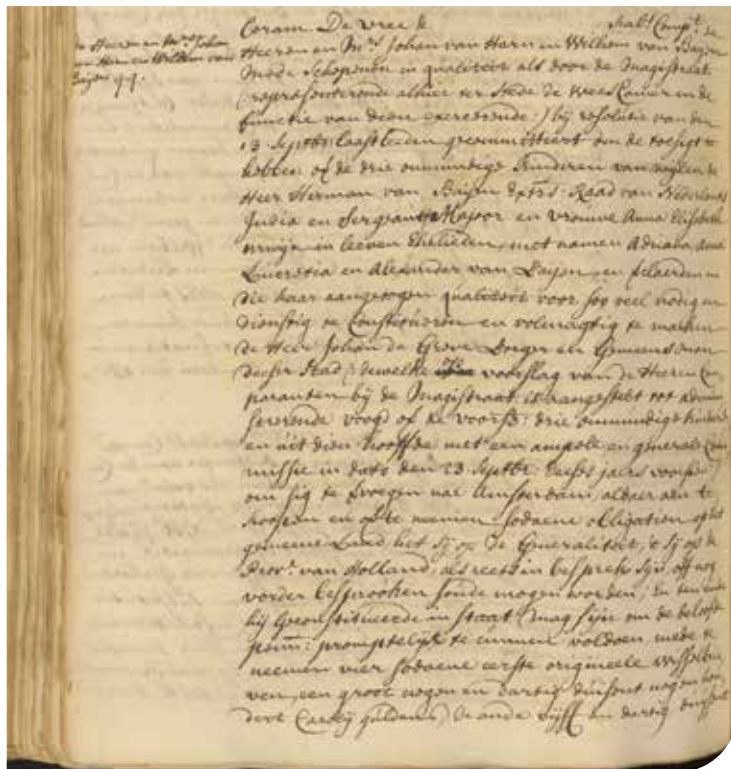 de Heeren en Mrs. Johan
van Haren en Wilhem van
Baijen qq.
Coram De vree &
Heeren en Mrs. Johan van Haren en Wilhem van Baijen
mede Schepenen in qualiteit als door de Magistraat
representerende alhier ter Stede de weescamer en de
functie van dien exercerende:) bij resolutie van den
13 Septbr: laastleden gecommitteert om de toesigt te
hebben op de drie onmundige kinderen van wijlen de
Heer Herman van Baijen Raad van Nederlands
India en Sergeant Majoor en vrouwe Anna Elisabeth
in leeven Ehelieden, met namen Adriana, Anna
Lucretia en Alexander van Baijen, en
die haar aangetogen qualiteit voor soo veel nodig en
dienstig te Constitueren en volmagtig te maeken
de Heer Johan de Greve Borger en Gemeensman
deeser Stad, dewelke voorslag van de Heeren Com
paranten bij de Magistraat is aangestelt tot admini
strerende voogd of de voorsz: drie onmundige kinderen
en uit dien hooffde met een ampele en generale Com
missie in dato den 23 Septbr: deeses jaers voorsien
om sig te vervoegen nae Amsterdam, aldaer aen te
koopen en op te neemen sodaene obligatien op het
gemeene Land, het sij op de Generaliteit, 't sij op de
Prov: van Holland, als reets in bespreck sijn, off nog
vorder besprooken soude mogen worden, En ten einde
hij Geconstitueerde in staat mag sijn om de beloofde
penn: promptelijk te cunnen voldoen, mede te
neemen vier sodaene eerste origineele wisselbrie
ven, een groot negen en dartig duisent negen hon
dert Car: guldens, de ande vijff en dartig duisent